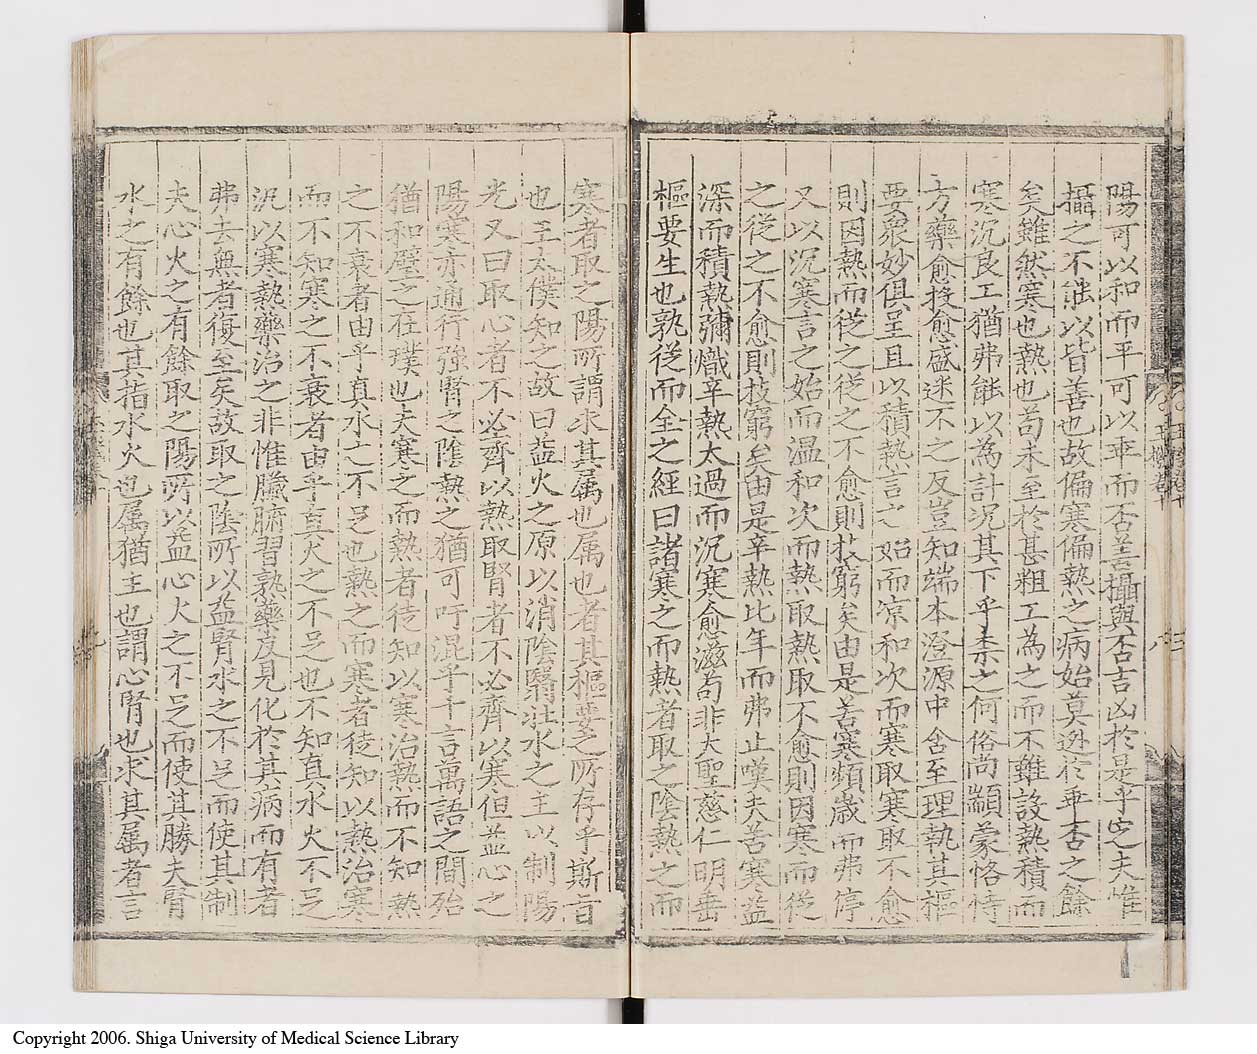 陽可以和而平可以乖而否善攝與否吉凶於是乎定夫惟
攝之不能以皆善也故偏寒偏熱之病始莫逃於乖否之餘
矣雖然寒也熱也苟未至於甚粗工為之而不難設熱積而
寒沉良工猶弗能以為計況其下乎柰之何俗尚顓蒙恪恃
方藥愈投愈盛迷不之反豈知端本澄源中含至理執其樞
要衆妙俱呈且以積熱言之始而凉和次而寒取寒取不愈
則因熱而從之從之不愈則技窮矣由是苦寒頻歲而弗停
又以沉寒言之始而溫和次而熱取熱取不愈則因寒而從
之從之不愈則技窮矣由是辛熱比年而弗止嘆夫苦寒益
深而積熱彌熾辛熱太過而沉寒愈滋苟非大聖慈仁明垂
樞要生也孰從而全之經曰諸寒之而熱者取之隂熱之而
寒者取之陽所謂求其属也属也者其樞要之所存乎斯旨
也王太僕知之故曰益火之原以消隂翳壯水之主以制陽
光又曰取心者不必齊以熱取腎者不必齊以寒但益心之
陽寒亦通行強腎之隂熱之猶可吁混乎千言萬語之間殆
猶和璧之在璞也夫寒之而熱者徒知以寒治熱而不知熱
之不衰者由乎真水之不足也熱之而寒者徒知以熱治寒
而不知寒之不衰者由乎真火之不足也不知真水火不足
況以寒熱藥治之非惟臟腑習熟藥反見化於其病而有者
弗去無者復至矣故取之隂所以益腎水之不足而使其制
夫心火之有餘取之陽所以益心火之不足而使其勝夫腎
水之有餘也其指水火也属猶主也謂心腎也求其属者言
Copyright 2006. Shiga University of Medical Science Library